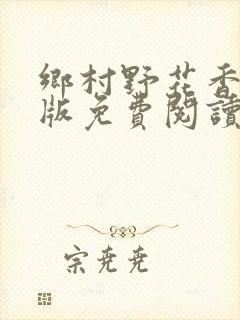 鄉村野花香
版免費閱讀
宗堯堯